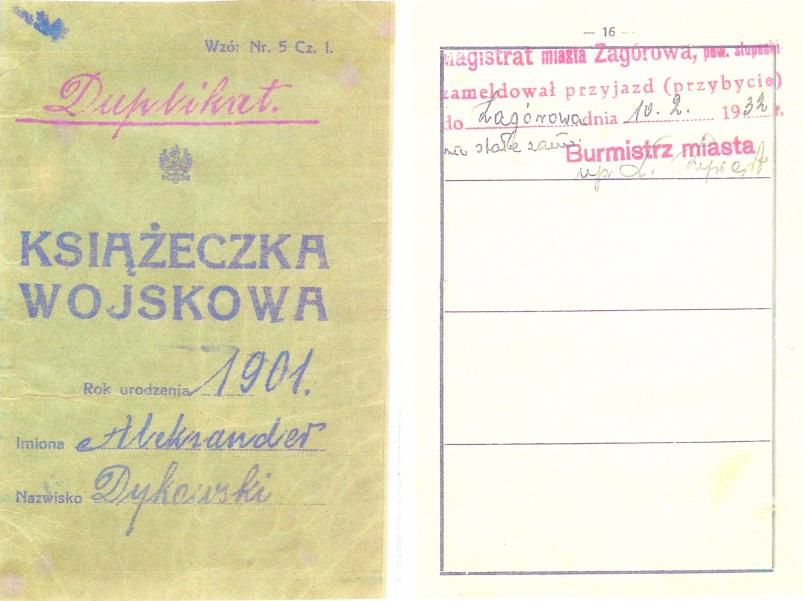 Wzór Nr. 5 Cz. I.
Duplikat.
KSIĄŻECZKA
WOJSKOWA
Rok urodzenia 1901.
Imiona Aleksander
Nazwisko Dykowski
— 16 —
Magistrat miasta Zagórowa, pow. słupecki
zameldował przyjazd (przybycie)
do Zagórowa dnia 10. 2. 1932 r.
na stałe zam.
Burmistrz miasta